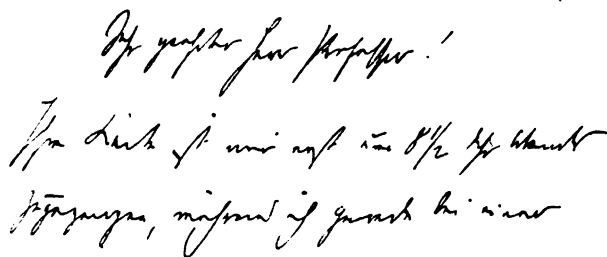 Sehr geehrter Herr Professor!
Ihre Karte ist mir erst um 8 1/2 Uhr Abends
zugegangen, während ich gerade bei einer